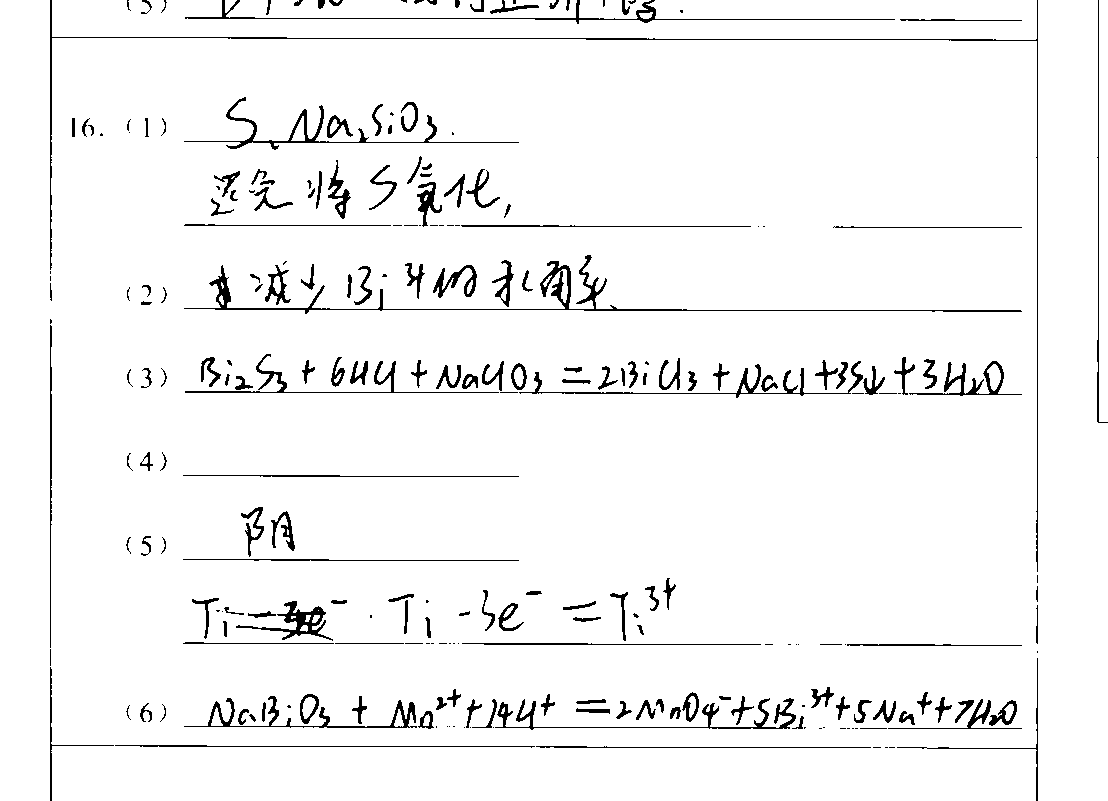 (5)
16. (1) S、Na₂SiO₃.
还先将S氧化,
(2) 减少Bi³⁺的利用率、
(3) Bi₂S₃ + 6HCl + NaClO₃ = 2BiCl₃ + NaCl + 3S↓ + 3H₂O
(4)
(5) 阴
Ti - 3e⁻ = Ti³⁺
(6) NaBiO₃ + Mn²⁺ + 14H⁺ = 2MnO₄⁻ + 5Bi³⁺ + 5Na⁺ + 7H₂O